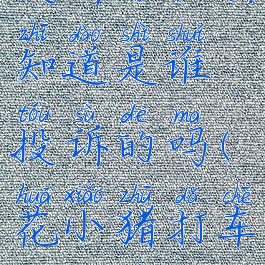 zhī dào shì shuí
知道是谁
tóu sù de ma
投诉的吗(
huā xiǎo zhū dǎ chē
花小猪打车